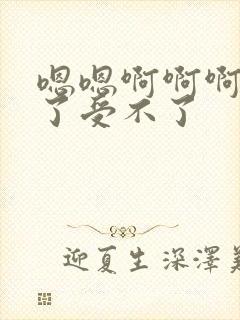 嗯嗯啊啊啊
了受不了
迎夏生深澤美